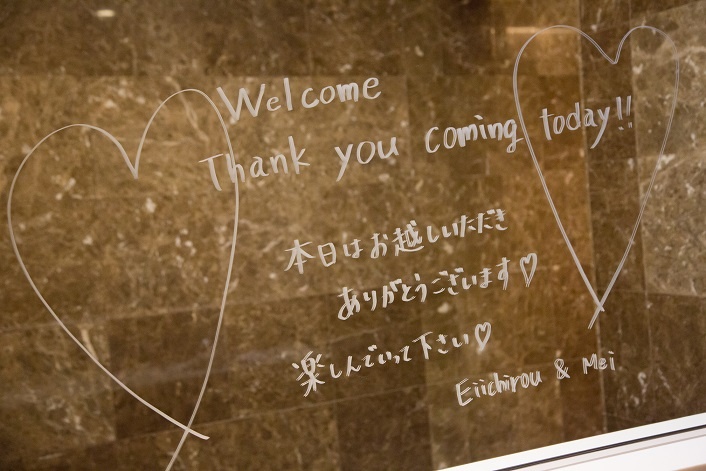 Welcome
Thank you coming today!!
本日はお越しいただき
ありがとうございます♡
楽しんでいって下さい♡
Eiichirou & Mei